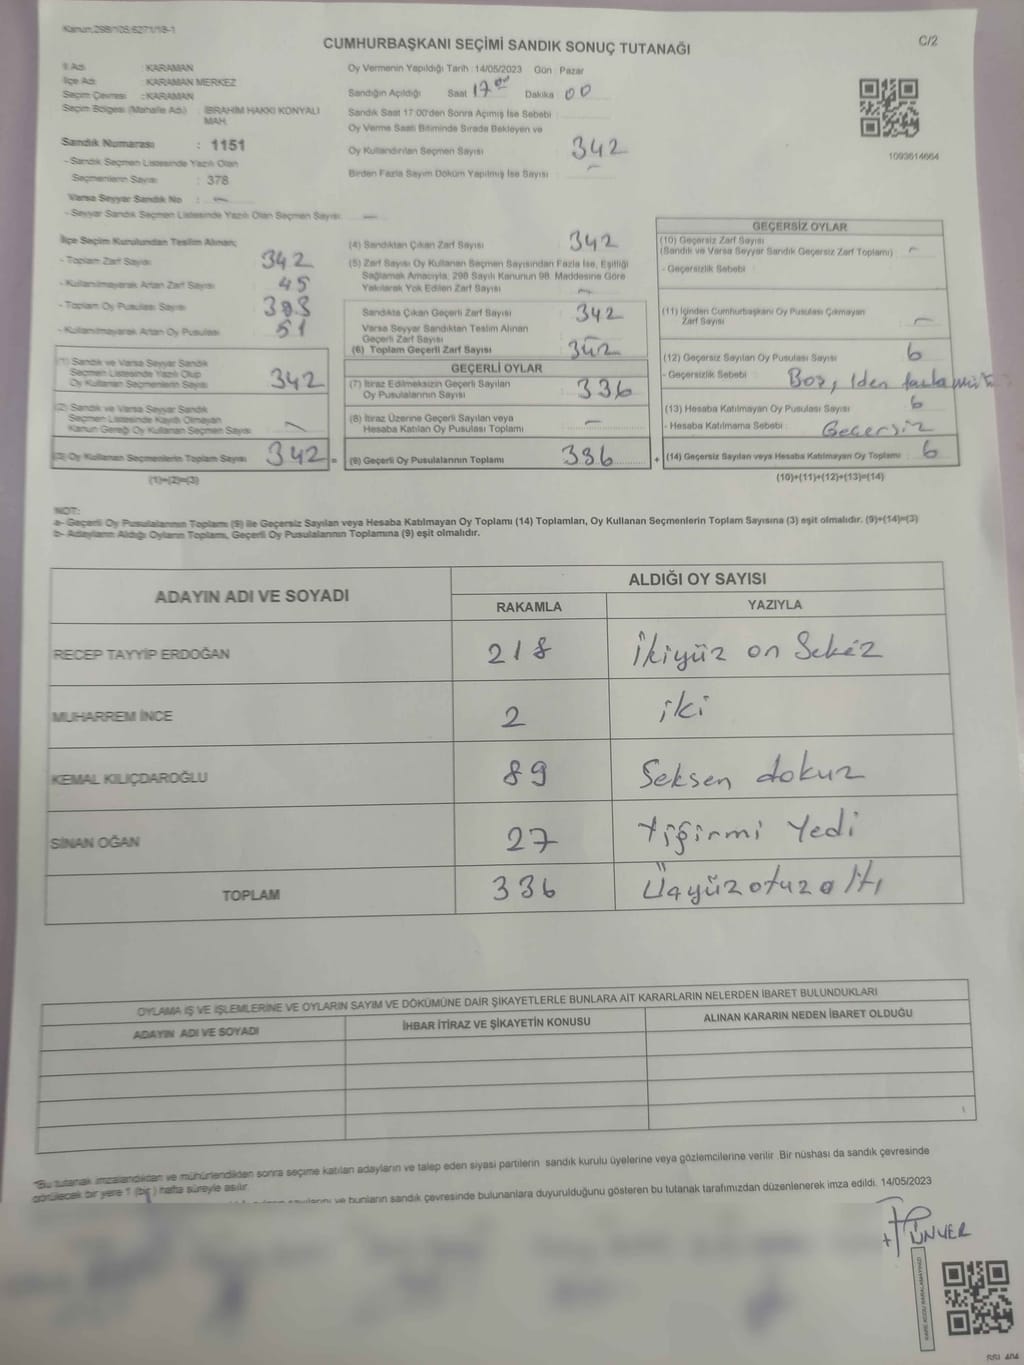 Kanun:298/105,6271/18-1
CUMHURBAŞKANI SEÇİMİ SANDIK SONUÇ TUTANAĞI
C/2
İl Adı : KARAMAN
İlçe Adı : KARAMAN MERKEZ
Seçim Çevresi : KARAMAN
Seçim Bölgesi (Mahalle Adı) : İBRAHİM HAKKI KONYALI
MAH.
Sandık Numarası : 1151
- Sandık Seçmen Listesinde Yazılı Olan
Seçmenlerin Sayısı : 378
Varsa Seyyar Sandık No : -
- Seyyar Sandık Seçmen Listesinde Yazılı Olan Seçmen Sayısı: -
Oy Vermenin Yapıldığı Tarih : 14/05/2023 Gün : Pazar
Sandığın Açıldığı Saat 17 00 Dakika 00
Sandık Saat 17:00'den Sonra Açılmış İse Sebebi :
Oy Verme Saati Bitiminde Sırada Bekleyen ve
Oy Kullandırılan Seçmen Sayısı 342
Birden Fazla Sayım Döküm Yapılmış İse Sayısı : -
1093614664
İlçe Seçim Kurulundan Teslim Alınan;
- Toplam Zarf Sayısı 342
- Kullanılmayarak Artan Zarf Sayısı 45
- Toplam Oy Pusulası Sayısı 393
- Kullanılmayarak Artan Oy Pusulası 51
(1) Sandık ve Varsa Seyyar Sandık
Seçmen Listesinde Yazılı Olup
Oy Kullanan Seçmenlerin Sayısı 342
(2) Sandık ve Varsa Seyyar Sandık
Seçmen Listesinde Kayıtlı Olmayan
Kanun Gereği Oy Kullanan Seçmen Sayısı -
(3) Oy Kullanan Seçmenlerin Toplam Sayısı 342 =
(1)+(2)=(3)
(4) Sandıktan Çıkan Zarf Sayısı 342
(5) Zarf Sayısı Oy Kullanan Seçmen Sayısından Fazla İse, Eşitliği
Sağlamak Amacıyla, 298 Sayılı Kanunun 98. Maddesine Göre
Yakılarak Yok Edilen Zarf Sayısı -
Sandıkta Çıkan Geçerli Zarf Sayısı 342
Varsa Seyyar Sandıktan Teslim Alınan
Geçerli Zarf Sayısı -
(6) Toplam Geçerli Zarf Sayısı 342
GEÇERLİ OYLAR
(7) İtiraz Edilmeksizin Geçerli Sayılan
Oy Pusulalarının Sayısı 336
(8) İtiraz Üzerine Geçerli Sayılan veya
Hesaba Katılan Oy Pusulası Toplamı -
(9) Geçerli Oy Pusulalarının Toplamı 336 +
GEÇERSİZ OYLAR
(10) Geçersiz Zarf Sayısı
(Sandık ve Varsa Seyyar Sandık Geçersiz Zarf Toplamı) -
- Geçersizlik Sebebi :
(11) İçinden Cumhurbaşkanı Oy Pusulası Çıkmayan
Zarf Sayısı -
(12) Geçersiz Sayılan Oy Pusulası Sayısı 6
- Geçersizlik Sebebi : Boş, 1den fazla
(13) Hesaba Katılmayan Oy Pusulası Sayısı 6
- Hesaba Katılmama Sebebi : Geçersiz
(14) Geçersiz Sayılan veya Hesaba Katılmayan Oy Toplamı : 6
(10)+(11)+(12)+(13)=(14)
NOT:
a- Geçerli Oy Pusulalarının Toplamı (9) ile Geçersiz Sayılan veya Hesaba Katılmayan Oy Toplamı (14) Toplamları, Oy Kullanan Seçmenlerin Toplam Sayısına (3) eşit olmalıdır. (9)+(14)=(3)
b- Adayların Aldığı Oyların Toplamı, Geçerli Oy Pusulalarının Toplamına (9) eşit olmalıdır.
ADAYIN ADI VE SOYADI
ALDIĞI OY SAYISI
RAKAMLA YAZIYLA
RECEP TAYYİP ERDOĞAN 218 İkiyüz on Sekiz
MUHARREM İNCE 2 iki
KEMAL KILIÇDAROĞLU 89 Seksen dokuz
SİNAN OĞAN 27 Yiğirmi Yedi
TOPLAM 336 Üçyüzotuzaltı
OYLAMA İŞ VE İŞLEMLERİNE VE OYLARIN SAYIM VE DÖKÜMÜNE DAİR ŞİKAYETLERLE BUNLARA AİT KARARLARIN NELERDEN İBARET BULUNDUKLARI
ADAYIN ADI VE SOYADI İHBAR İTİRAZ VE ŞİKAYETİN KONUSU ALINAN KARARIN NEDEN İBARET OLDUĞU
*Bu tutanak imzalandıktan ve mühürlendikten sonra seçime katılan adayların ve talep eden siyasi partilerin sandık kurulu üyelerine veya gözlemcilerine verilir. Bir nüshası da sandık çevresinde
görülecek bir yere 1 (bir) hafta süreyle asılır.
ve bunların sandık çevresinde bulunanlara duyurulduğunu gösteren bu tutanak tarafımızdan düzenlenerek imza edildi. 14/05/2023
ÜNVER
KARE KODU KARALAMAYINIZ!